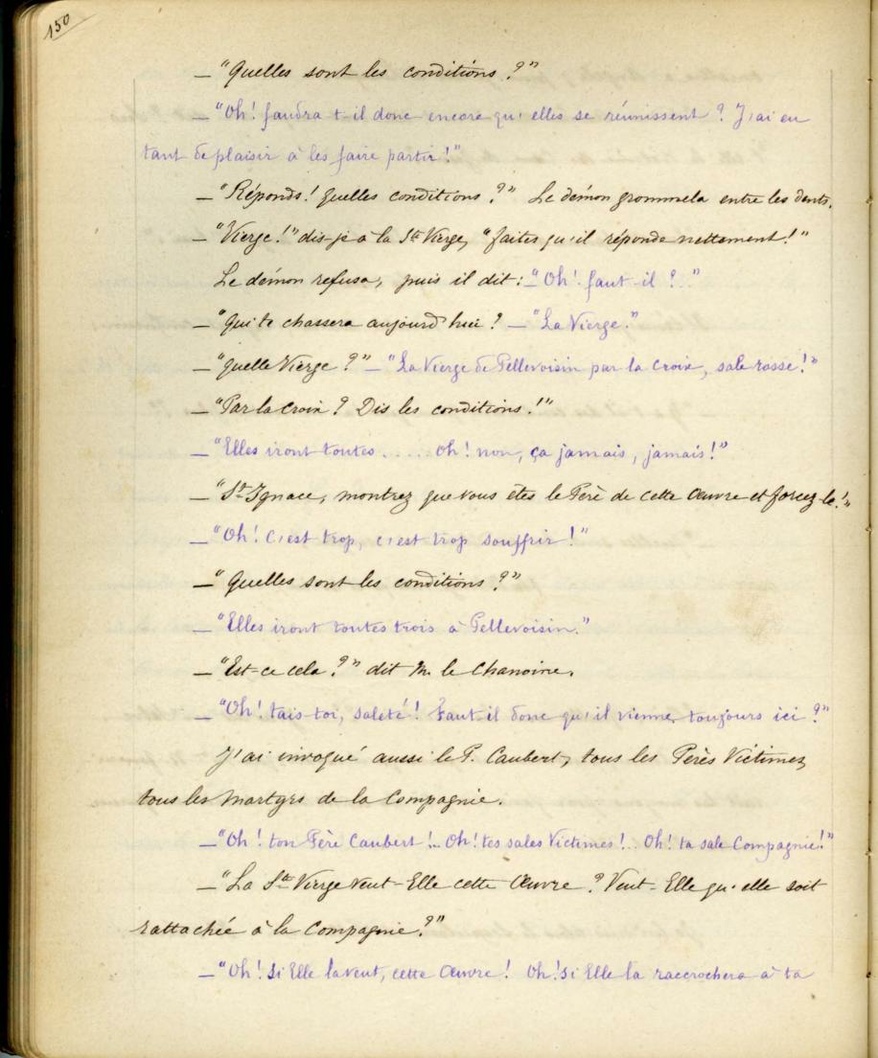 150
— "Quelles sont les conditions ?"
— "Oh! faudra t-il donc encore qu'elles se réunissent ? J'ai eu
tant de plaisir à les faire partir!"
— "Réponds! Quelles conditions ?" Le démon grommela entre les dents.
— "Vierge!" dis-je à la Ste Vierge, "faites qu'il réponde nettement!"
Le démon refusa, puis il dit: — "Oh! faut-il ?.."
— "Qui te chassera aujourd'hui ? — "La Vierge."
— "Quelle Vierge ?" — "La Vierge de Pellevoisin par la Croix, sale rosse!"
— "Par la Croix ? Dis les conditions!"
— "Elles iront toutes ..... Oh! non, ça jamais, jamais!"
— "St Ignace, montrez que vous êtes le Père de cette Œuvre et forcez-le!"
— "Oh! C'est trop, c'est trop souffrir!"
— "Quelles sont les conditions ?"
— "Elles iront toutes trois à Pellevoisin."
— "Est-ce cela ?" dit M. le Chanoine.
— "Oh! tais-toi, saleté! Faut-il donc qu'il vienne toujours ici ?"
J'ai invoqué aussi le P. Caubert, tous les Pères Victimes,
tous les Martyrs de la Compagnie.
— "Oh! ton Père Caubert!.. Oh! tes sales Victimes!.. Oh! ta sale Compagnie!"
— "La Ste Vierge veut-Elle cette Œuvre ? Veut-Elle qu'elle soit
rattachée à la Compagnie ?"
— "Oh! si Elle la veut, cette Œuvre! Oh! si Elle la raccrochera à ta